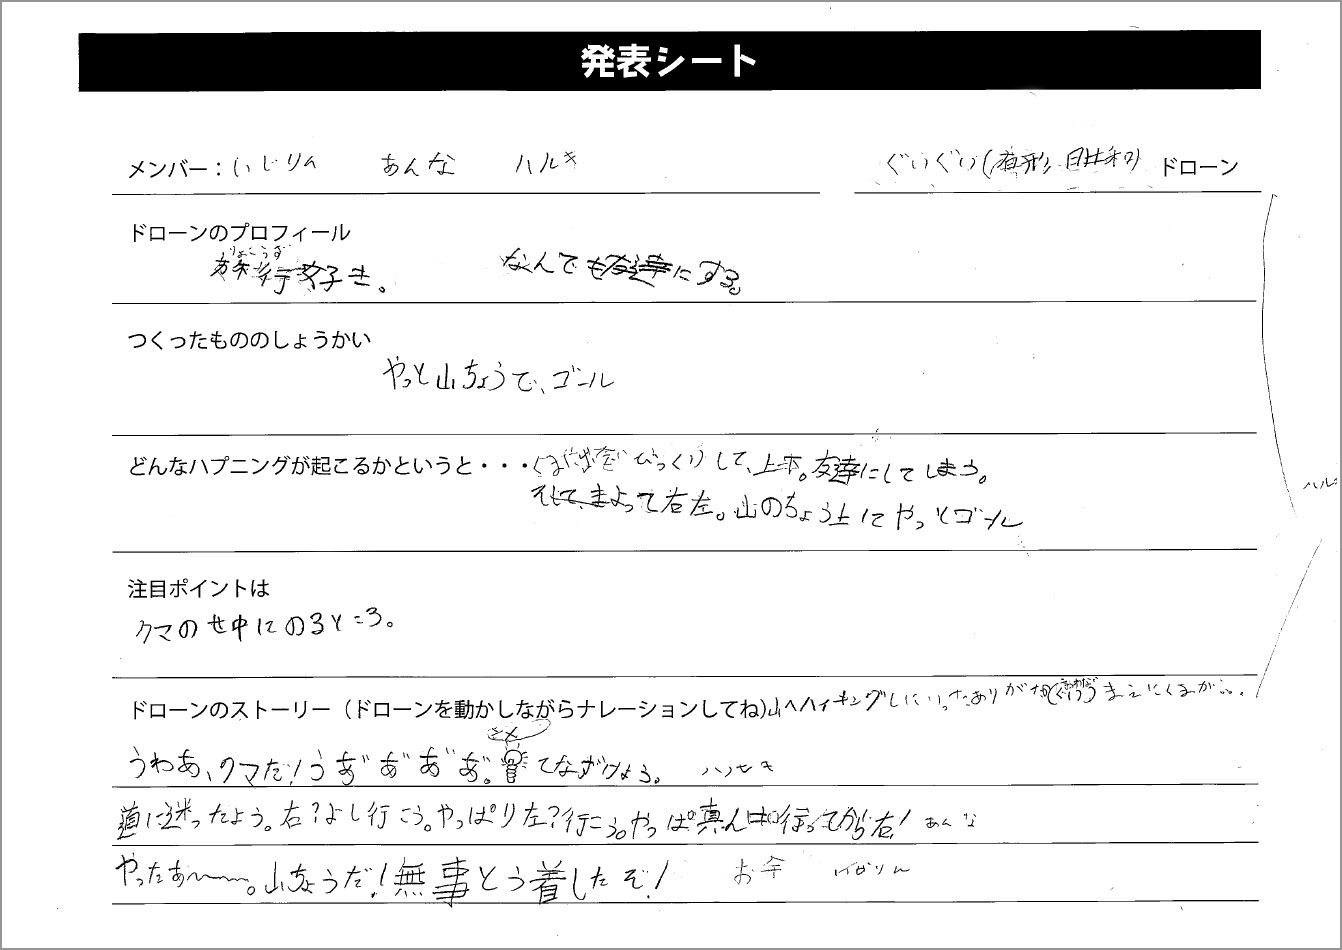 発表シート
メンバー：いじりん あんな ハルキ ぐいぐい( ドローン
ドローンのプロフィール
りょこうず
旅行好き。 なんでも友達にする。
つくったもののしょうかい
やっと山ちょうで、ゴール
どんなハプニングが起こるかというと・・・くまに出会いびっくりして、上下。友達にしてしまう。
そして、まよって右左。山のちょう上にやっとゴール
ハル
注目ポイントは
クマのせ中にのるところ。
ドローンのストーリー（ドローンを動かしながらナレーションしてね)山へハイキングしにいった まえにくまが…。
うわあ、クマだ！うあ゛あ゛あ゛あ゛。てなずけよう。 ハルキ
道に迷ったよう。右？よし行こう。やっぱり左？行こう。やっぱ真ん中行ってから右！ あんな
やったあ〜〜。山ちょうだ！無事とう着したぞ！